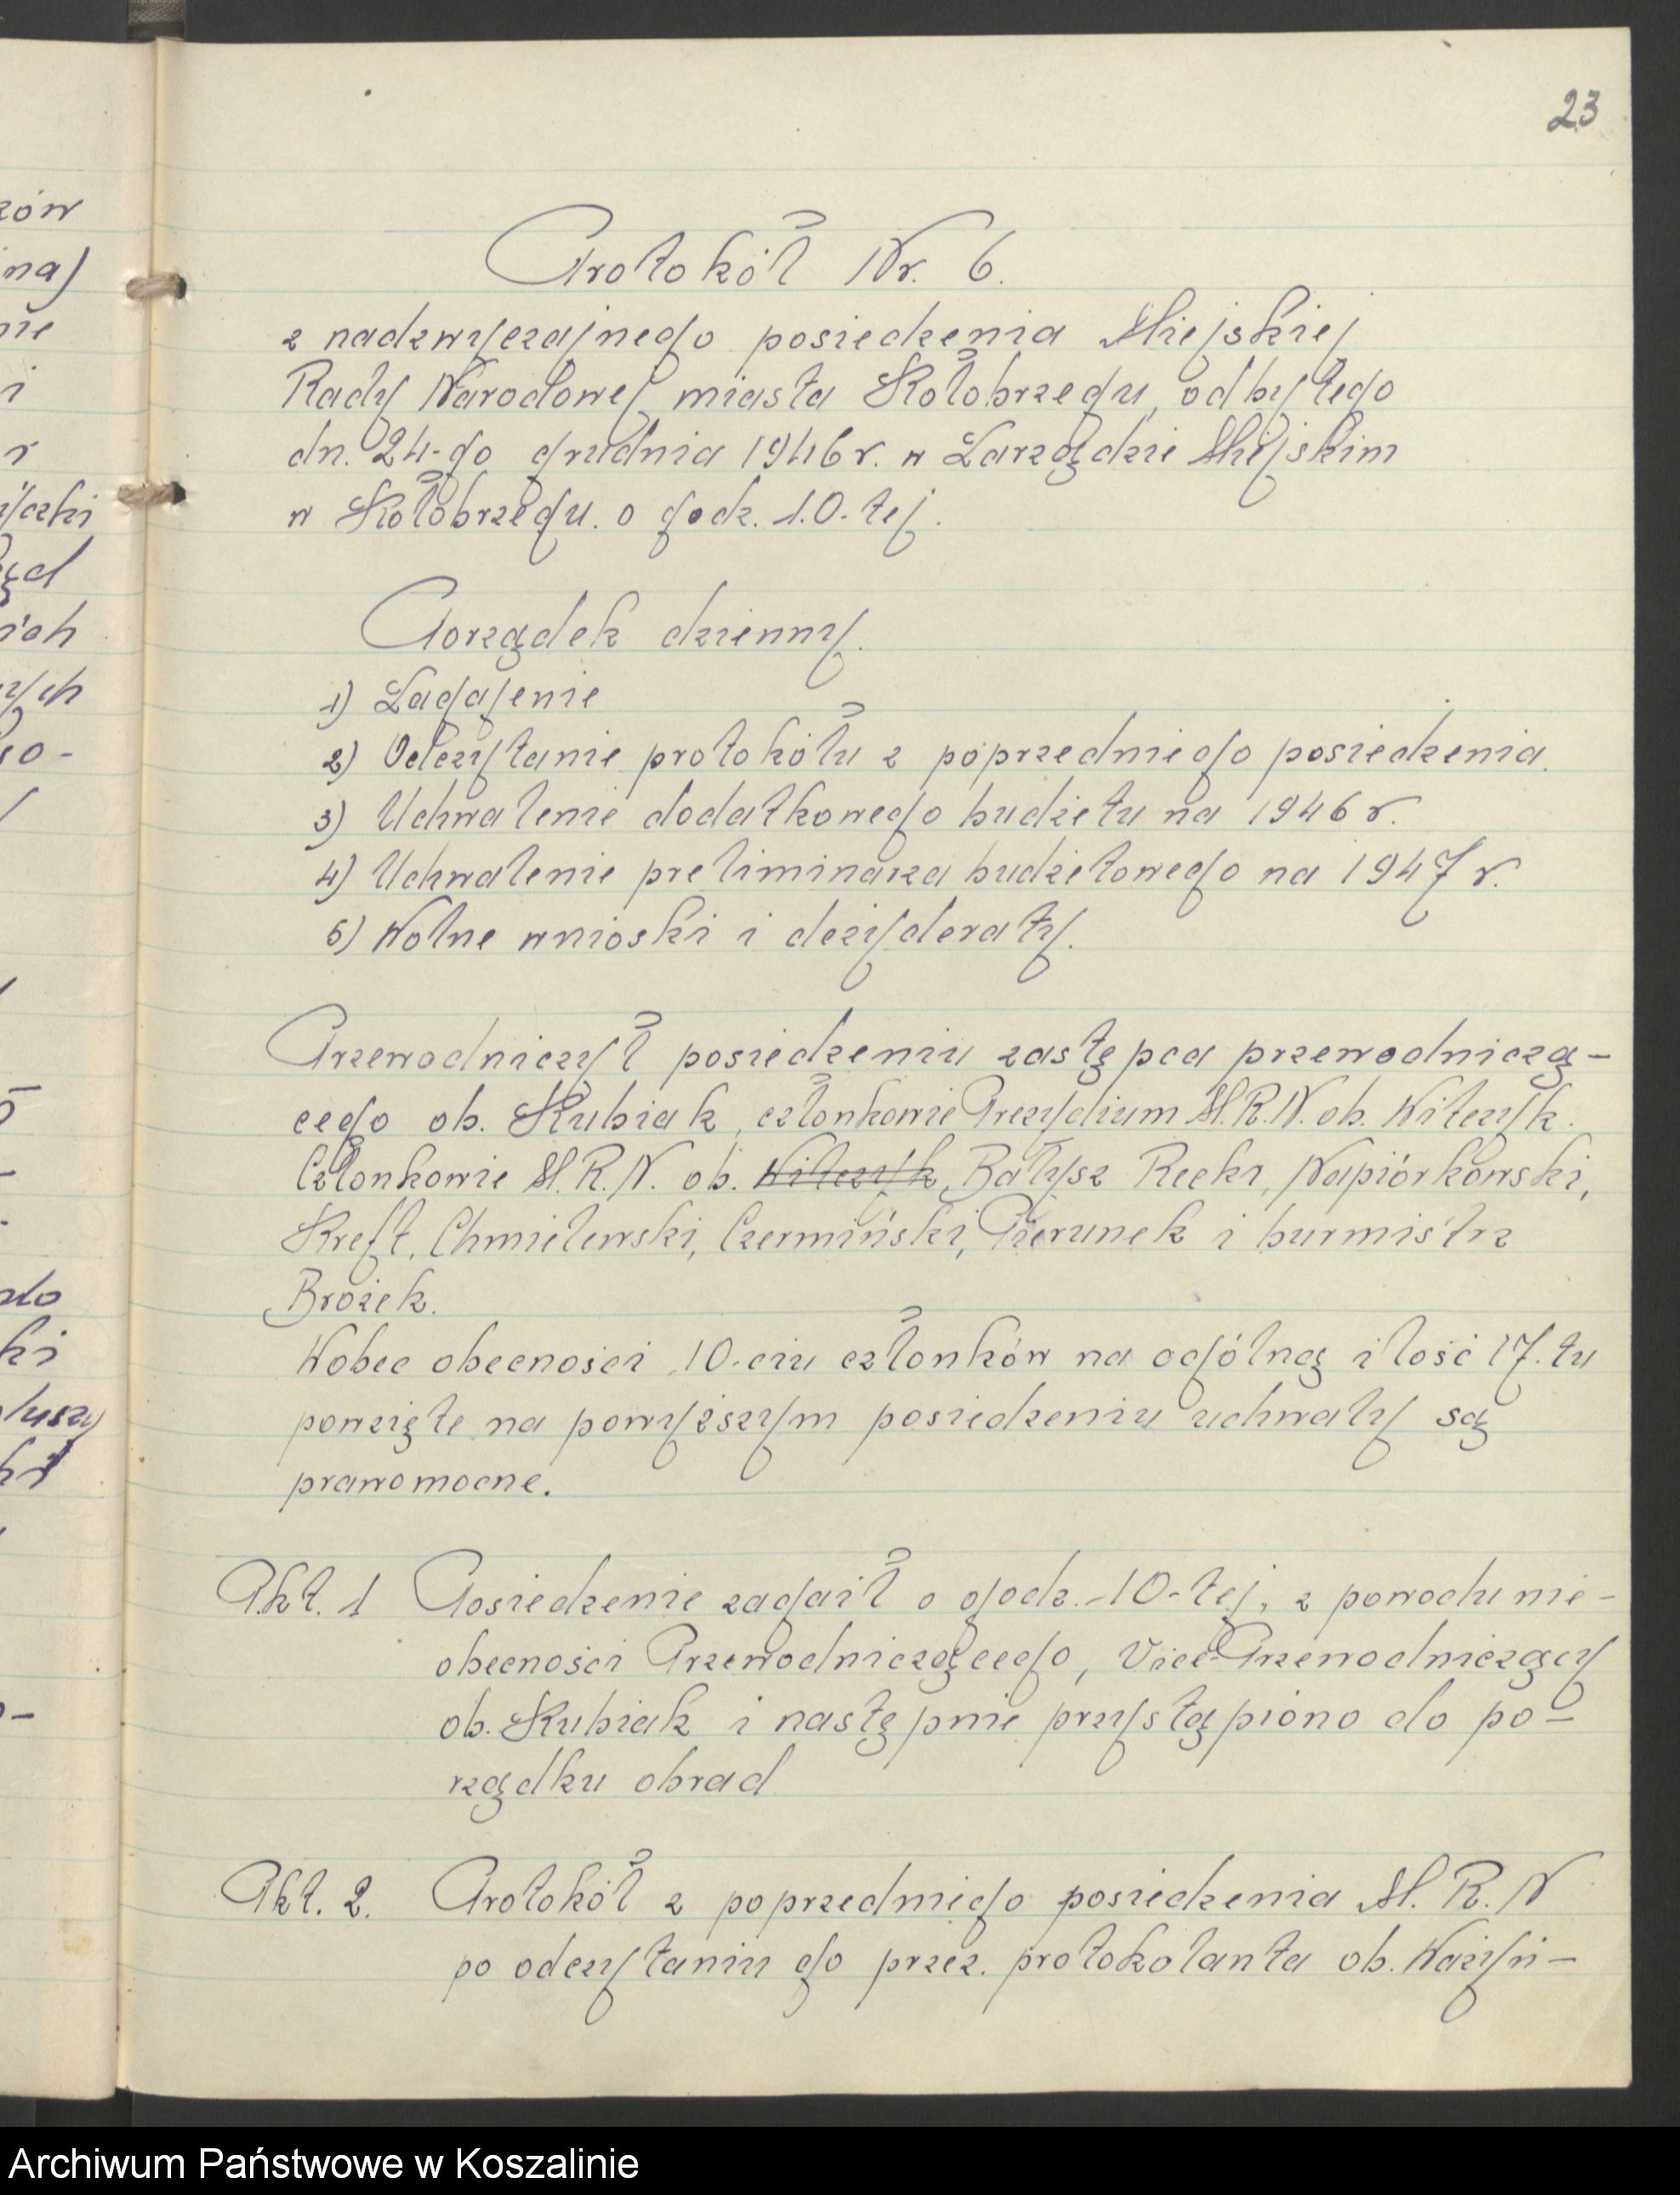 23
Protokół Nr. 6.
z nadzwyczajnego posiedzenia Miejskiej
Rady Narodowej miasta Kołobrzegu, odbytego
dn. 24-go grudnia 1946 r. w Zarządzie Miejskim
w Kołobrzegu. o godz. 10-tej.
Porządek dzienny.
1) Zagajenie
2) Odczytanie protokółu z poprzedniego posiedzenia.
3) Uchwalenie dodatkowego budżetu na 1946 r.
4) Uchwalenie preliminarza budżetowego na 1947 r.
5) Wolne wnioski i dezyderaty.
Przewodniczył posiedzeniu zastępca przewodniczą-
cego ob. Kubiak, członkowie Prezydium M.R.N. ob. Witczyk.
Członkowie M.R.N. ob. Witczyk, Bałysz Recki, Napiórkowski,
Kreft, Chmielewski, Czermiński, Pierunek i burmistrz
Brożek.
Wobec obecności 10-ciu członków na ogólną ilość 17-tu
powzięte na powyższym posiedzeniu uchwały są
prawomocne.
Pkt. 1 Posiedzenie zagaił o godz. 10-tej, z powodu nie-
obecności Przewodniczącego, Vice-Przewodniczący
ob. Kubiak i następnie przystąpiono do po-
rządku obrad
Pkt. 2. Protokół z poprzedniego posiedzenia M.R.N
po odczytaniu go przez. protokolanta ob.Ważyń-
zów
na)
nie
i
r
yczki
ząd
ich
ych
so-
do
ki
łuszy
ki
Archiwum Państwowe w Koszalinie